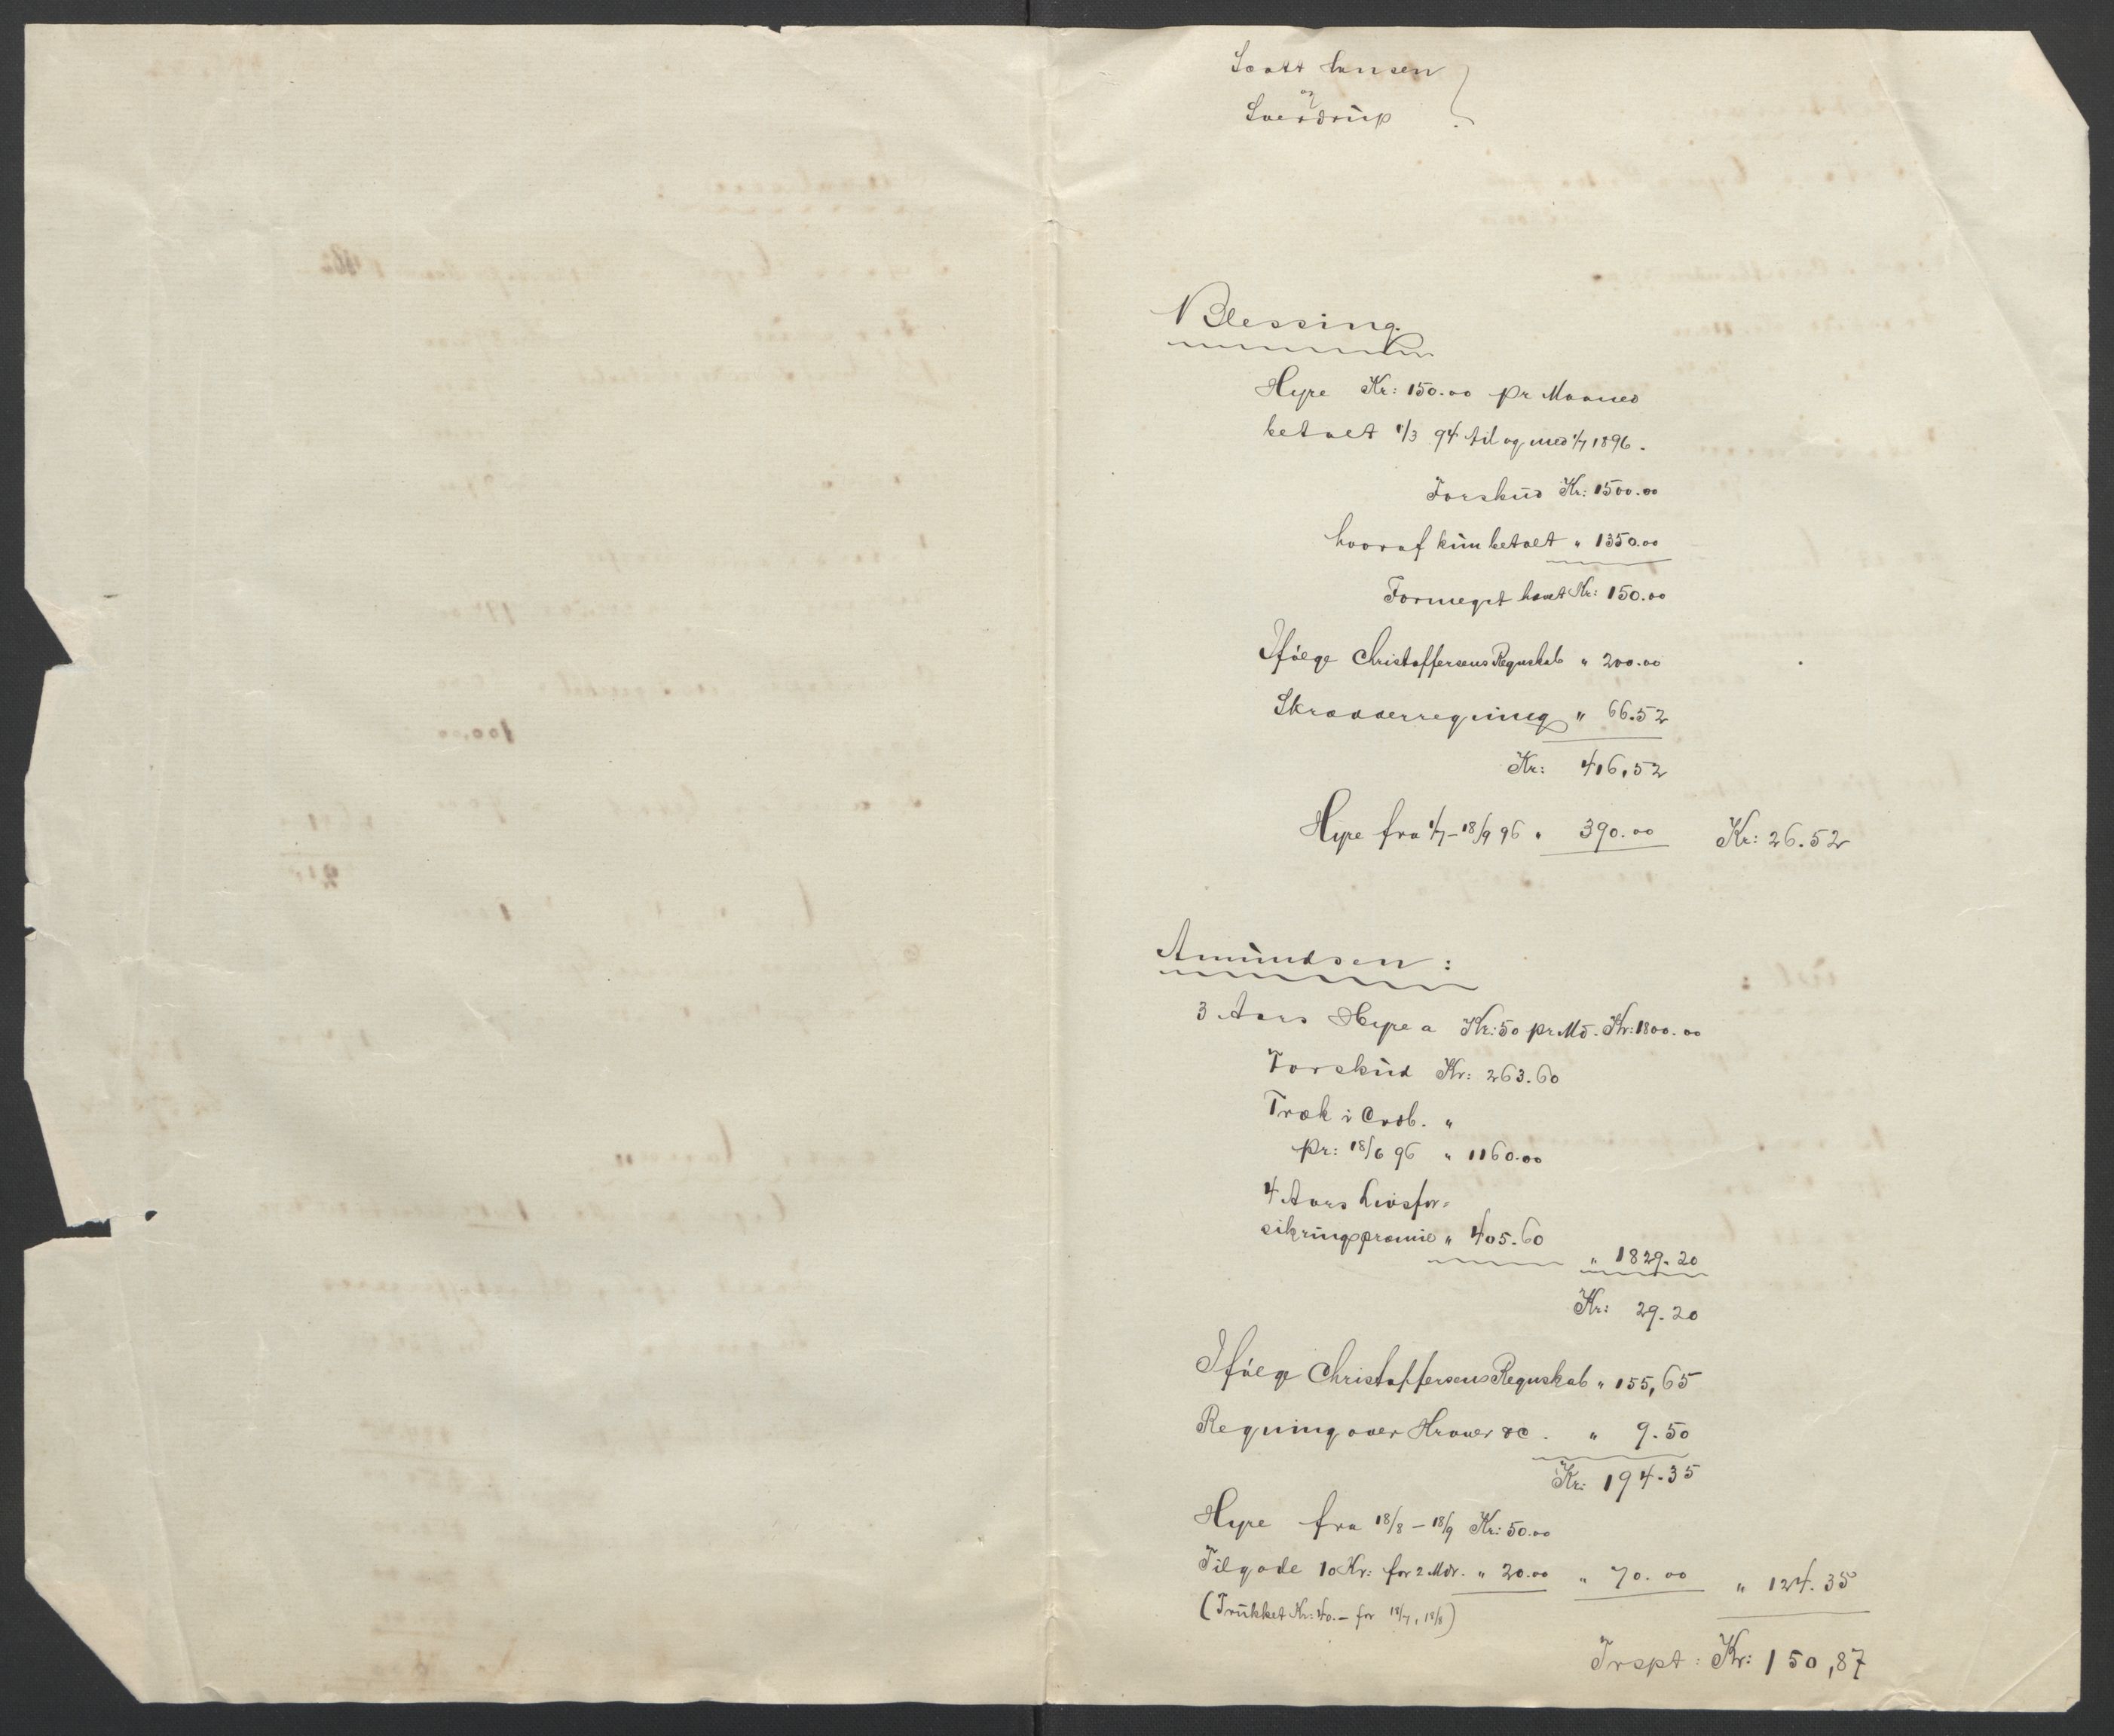 Scott Hansen
og
Sverdrup
Blessing.
Hyre Kr: 150.00 pr Maaned
betalt 1/3 94 til og med 1/7 1896.
Forskud Kr: 1500.00
hvoraf kun betalt " 1350.00
Formeget hævet Kr: 150.00
Ifølge Christoffersens Regnskab " 200.00
Skrædderregning " 66.52
Kr: 416,52
Hyre fra 1/7-18/9 96 " 390.00 Kr: 26.52
Amundsen:
3 Aars Hyre a Kr: 50 pr Md. Kr: 1800.00
Forskud Kr: 263.60
Træk i Crdb. "
pr: 18/6 96 " 1160.00
4 Aars Livsfor-
sikringspræmie " 405.60
" 1829.20
Kr: 29.20
Ifølge Christoffersens Regnskab " 155,65
Regning over &c. " 9.50
Kr: 194.35
Hyre fra 18/8-18/9 Kr: 50.00
Tilgode 10 Kr: for 2 Mdr. " 20.00 " 70.00 " 124.35
(Trukket Kr: 40.- for 18/7, 18/8)
Trspt: Kr: 150,87